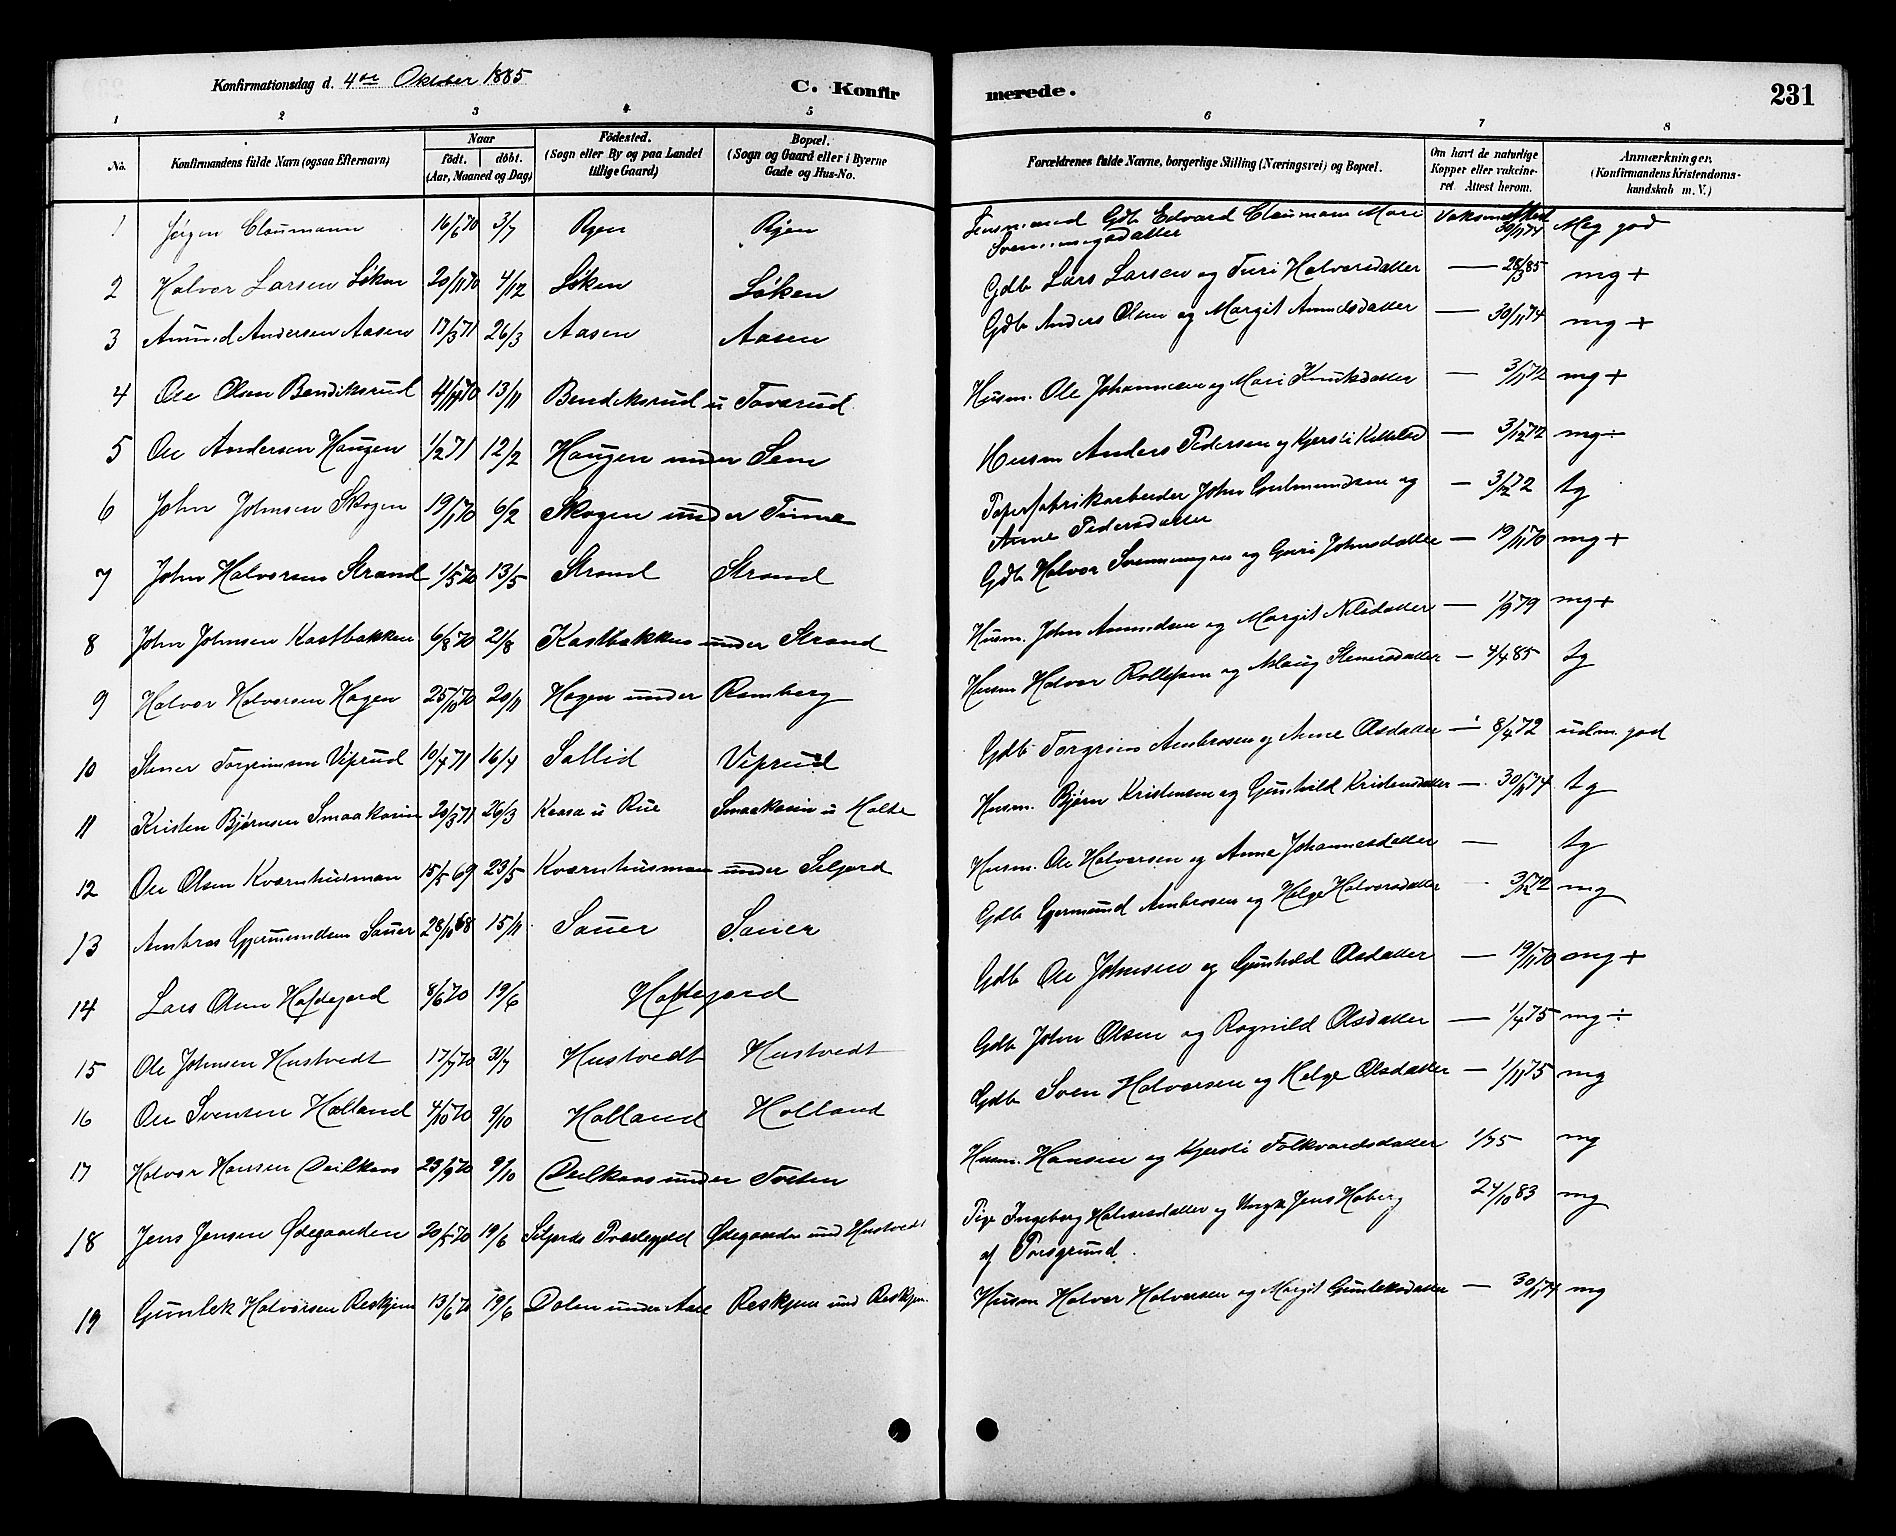 Konfirmationsdag d. 4de Oktober 1885
C. Konfirmerede.
231
1 2 3 4 5 6 7 8
No. Konfirmandens fulde Navn (ogsaa Efternavn) Naar födt. döbt. (Aar, Maaned og Dag) Födested. (Sogn eller By og paa Landet tillige Gaard) Bopæl. (Sogn og Gaard eller i Byerne Gade og Hus-No. Forældrenes fulde Navne, borgerlige Stilling (Næringsvei) og Bopæl. Om havt de naturlige Kopper eller vakcineret. Attest herom. Anmærkninger. (Konfirmandens Kristendomskundskab m. V.)
1 Jørgen Claumann 16/6 70 3/7 Rjen Rjen Lensmænd Gdb Edvard Claumann Mari 30/11 74 Meg god
2 Halvor Larsen Løken 20/11 70 4/12 Løken Løken Gdb Lars Larsen og Turi Halvorsdatter — 28/3 85 mg +
3 Amund Andersen Aasen 17/3 71 26/3 Aasen Aasen Gdb Anders Olsen og Margit Amundsdatter — 30/11 74 mg +
4 Ole Olsen Bendiksrud 4/11 70 13/11 Bendiksrud u Taverud Husm. Ole Johannesen og Mari Knutsdatter — 3/11 72 mg +
5 Ole Andersen Haugen 1/2 71 12/2 Haugen under Sem Husm Anders Pedersen og Kjersti — 3/12 72 mg ÷
6 John Johnsen Skogen 19/1 70 6/2 Skogen under Tinne Papirfabrikarbeider John Gulmundsen og — 3/12 72 tg
Anne Pedersdatter
7 John Halvorsen Strand 1/5 70 13/5 Strand Strand Gdb Halvor Svennungsen og Guri Johnsdatter — 19/11 70 mg +
8 John Johnsen Kastbakken 6/8 70 21/8 Kastbakken under Strand Husm. John Amundsen og Margit Nilsdatter — 1/9 79 mg +
9 Halvor Halvorsen Hagen 25/10 70 20/11 Hagen under Ramberg Husm Halvor Rollefsen og Aslaug Stenersdatter — 4/4 85 tg
10 Stener Torgrimsen Viprud 10/4 71 16/4 Sallid Viprud Gdb Torgrim Ambrosen og Anne Olsdatter — 8/4 72 udm. god
11 Kristen Bjørnsen Smaakasin 20/3 71 26/3 Kaasa u Rue Smaakasin u Holte Husm. Bjørn Kristensen og Gunhild Kristensdatter — 30/11 74 tg
12 Ole Olsen Kværnhusman 15/5 69 23/5 Kværnhusman under Seljord Husm. Ole Halvorsen og Anne Johannesdatter — tg
13 Ambros Gjermundsen Sauer 28/10 68 15/11 Sauer Sauer Gdb Gjermund Ambrosen og Helge Halvorsdatter - 3/12 72 mg
14 Lars Olsen Haftegard 8/6 70 19/6 Haftegard Gdb Ole Johnsen og Gunhild Olsdatter — 19/11 70 mg +
15 Ole Johnsen Hustvedt 17/7 70 31/7 Hustvedt Hustvedt Gdb John Olsen og Ragnild Olsdatter — 1/4 75 mg ÷
16 Ole Svensen Holland 4/10 70 9/10 Holland Holland Gdb Sven Halvorsen og Helge Olsdatter — 1/11 75 mg
17 Halvor Hansen 23/9 70 9/10 under Tveten Husm. Hansen og Kjersti Folkvardsdatter 1/75 mg
18 Jens Jensen Ødegaarden 20/5 70 19/6 Seljords Præstegjeld Ødegaarden und Hustvedt Pige Ingeborg Halvorsdatter og Ungk Jens Hoberg 24/10 83 mg
af Porsgrund.
19 Gunlek Halvorsen Reskjem 13/6 70 19/6 Dalen under Aase Reskjem und Reskjem. Husm Halvor Halvorsen og Margit Gunleksdatter — 30/11 74 mg